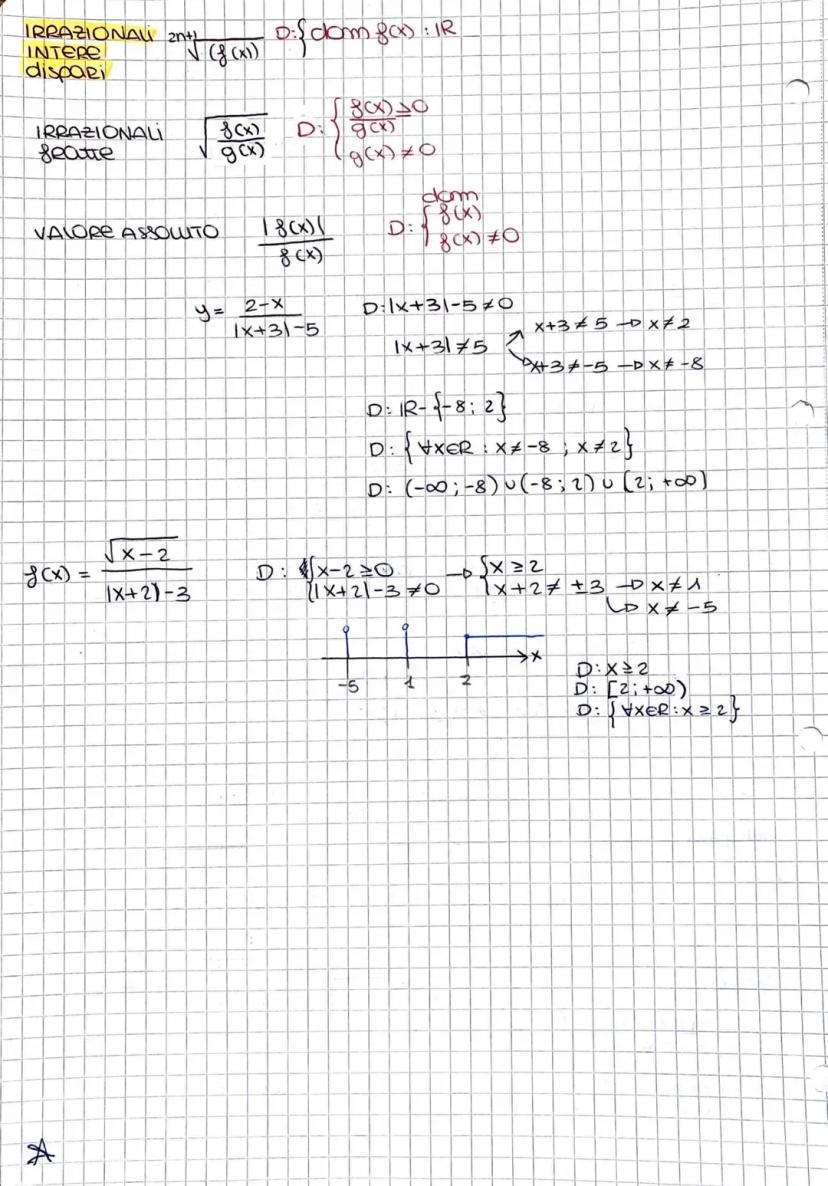 IRRAZIONALI INTERE dispari ²ⁿ⁺¹√(f(x)) D:{dom f(x) : ℝ
IRRAZIONALI fratte √(f(x)/g(x)) D: { f(x)/g(x) ≥0
g(x) ≠ 0
VALORE ASSOLUTO |f(x)|/f(x) D: { dom f(x)
f(x) ≠0
y = (2-x)/(|x+3|-5) D:|x+3|-5≠0
|x+3|≠5 ↗ x+3≠5 → x≠2
↘ x+3≠-5 → x≠-8
D: ℝ-{-8; 2}
D: {∀x∈R : x≠-8 ; x≠2}
D: (-∞;-8)∪(-8;2)∪[2;+∞]
f(x) = √(x-2)/(|x+2|-3) D: { x-2≥0 → { x≥2
|x+2|-3≠0 x+2≠ ±3 → x≠1
↳ x≠-5
-5 1 2 x
D: x≥2
D: [2;+∞)
D: {∀x∈R:x≥2}